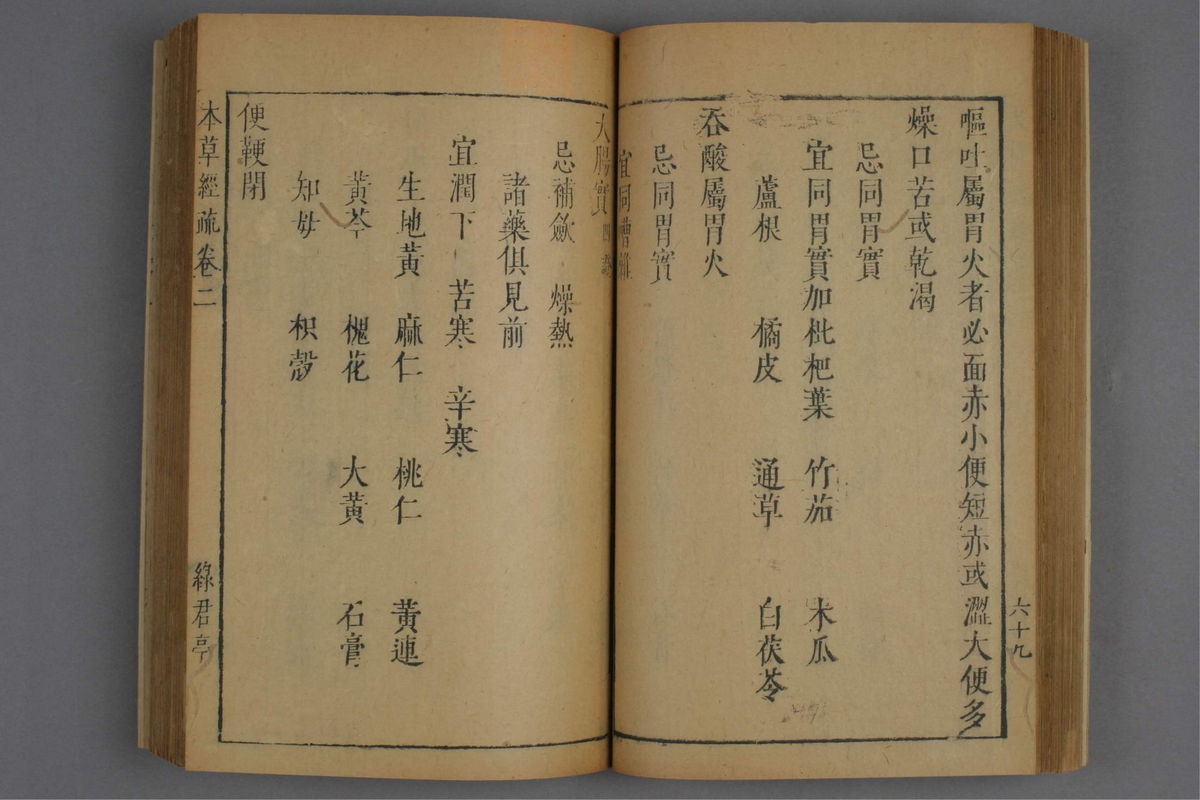 六十九
嘔吐屬胃火者必面赤小便短赤或澀大便多
燥口苦或乾渴
忌同胃實
宜同胃實加枇杷葉 竹茹 木瓜
蘆根 橘皮 通草 白茯苓
吞酸屬胃火
忌同胃實
宜同嘈雜
大腸實四證
忌補斂 燥熱
諸藥俱見前
宜潤下 苦寒 辛寒
生地黃 麻仁 桃仁 黃連
黃芩 槐花 大黃 石膏
知母 枳殼
便鞕閉
本草經疏 卷二 綠君亭